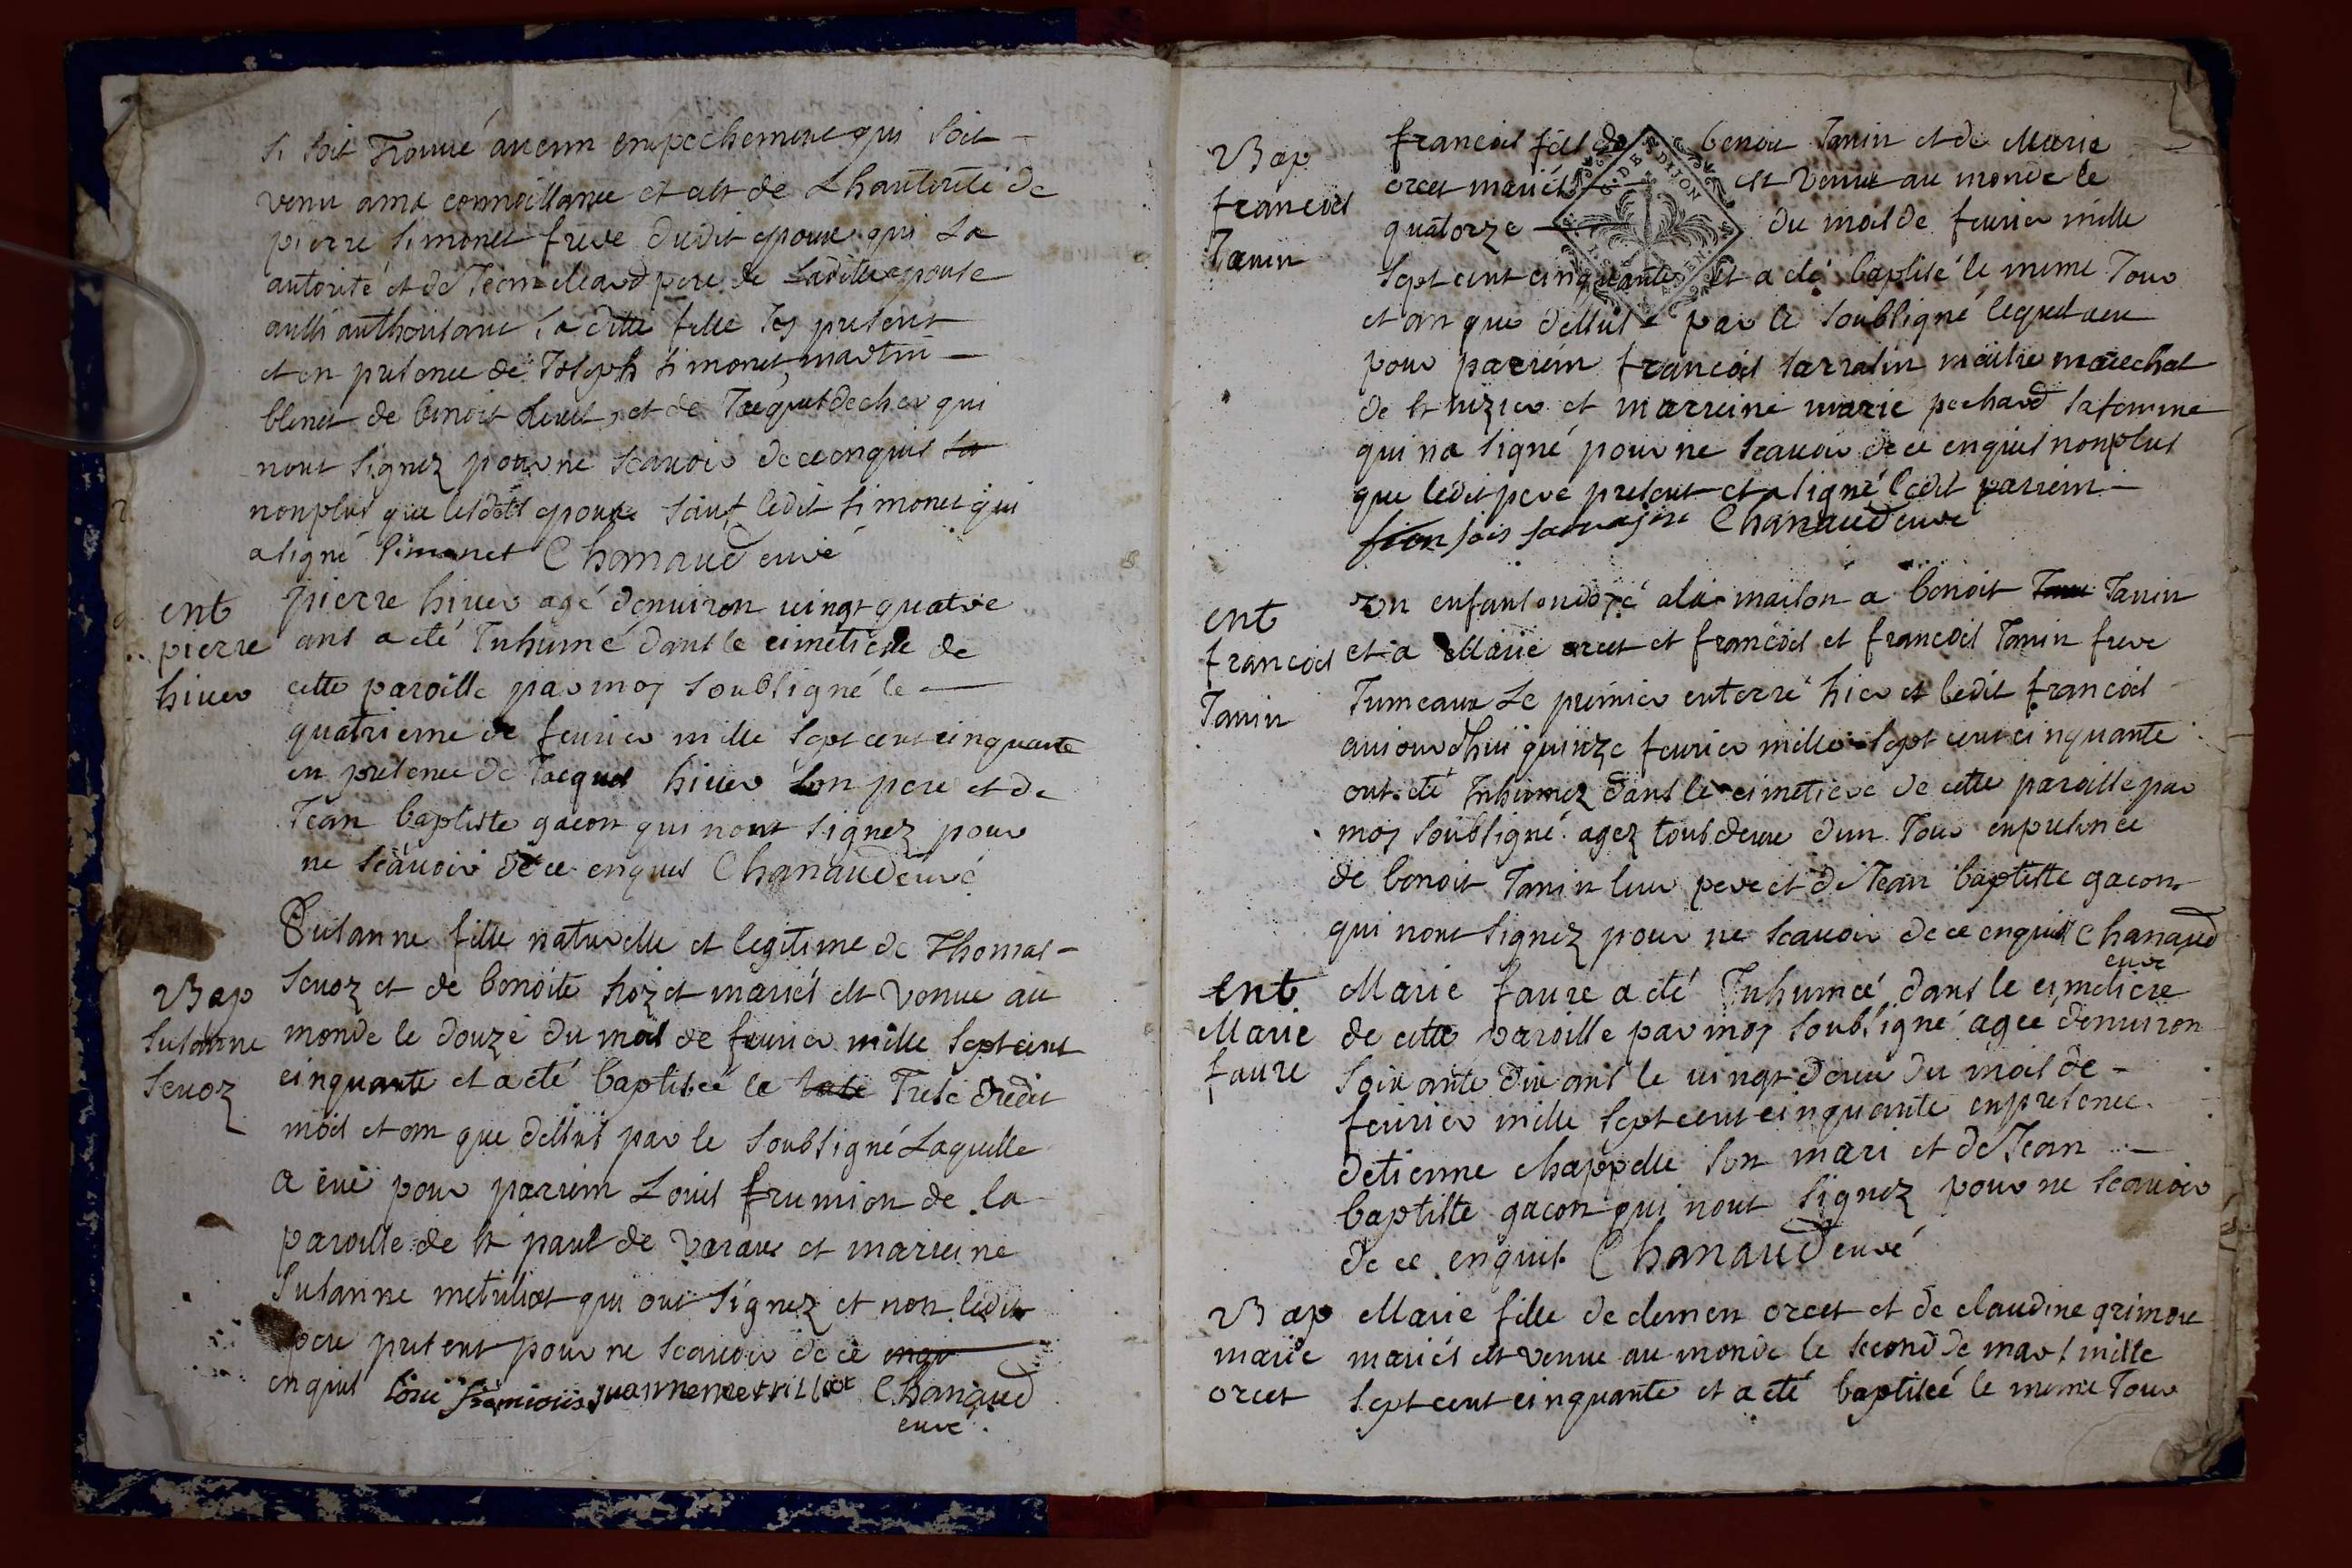 si soit Trouvé aucun empechement qui soit
venu ama connoissance et est de Lhautorité de
pierre simonet frere dudit epoux qui La
autorité et de Jean Meard pere de Laditte epouse
aussi authorisant la ditte fille Icy present
et en presence de Joseph simonet, martin
blonet de benoit et de Jacquet dechor qui
nont signez pour ne scavoir de ce enquis
nonplus que lesdits epoux sauf ledit simonet qui
a signé Simonet Chanaud curé
ent
pierre
hiver
pierre hiver agé denviron vingt quatre
ans a eté Inhumé dans le cimetiere de
cette paroisse par moy soubsigné le
quatrieme de fevrier mille sept cent cinquante
en presence de Jacques hiver son pere et de
Jean baptiste gacon qui nont signez pour
ne scavoir de ce enquis Chanaud curé
Bap
susanne
sevoz
Susanne fille naturelle et legitime de Thomas
sevoz et de benoite hozet mariés est venue au
monde le douze du mois de fevrier mille sept cent
cinquante et a eté baptisée le Trese dudit
mois et an que dessus par le soubsigné Laquelle
a eüe pour parrein Louis frumion de la
paroisse de st paul de varax et marreine
Susanne metuliat qui ont signez et non ledit
pere present pour ne scavoir de ce
enquis Chanaud
curé
Bap
francois
Janin
C. DE DIJON
francois fils de benoit Janin et de Marie
orcet mariés est venu au monde le
quatorze du mois de fevrier mille
sept cent cinquante Et a eté baptisé le meme Jour
et an que dessus par le soubsigné lequel a eu
pour parrein francois sarrasin maitre marechal
de st nizier et marreine marie pechard sa femme
qui na signé pour ne scavoir de ce enquis nonplus
que ledit pere present et a signé ledit parrein
Chanaud curé
ent
francois
Janin
un enfant ondoyé a la maison a benoit Janin
et a Marie orcet et francois et francois Janin frere
Jumeaux Le premier enterré hier et ledit francois
aujourdhui quinze fevrier mille sept cent cinquante
ont eté Inhumez dans le cimetiere de cette paroisse par
moy soubsigné agez tous deux dun Jour en presence
de benoit Janin leur pere et de Jean baptiste gacon
qui nont signez pour ne scavoir de ce enquis Chanaud
curé
ent
Marie
faure
Marie faure a eté Inhumée dans le cimetiere
de cette paroisse par moy soubsigné agée denviron
soixante dix ans le vingt deux du mois de
fevrier mille sept cent cinquante en presence
detienne chappelle son mari et de Jean
baptiste gacon qui nont signez pour ne scavoir
de ce enquis Chanaud curé
Bap
marie
orcet
Marie fille de clemen orcet et de claudine grimone
mariés est venue au monde le second de mars mille
sept cent cinquante et a eté baptisée le meme Jour